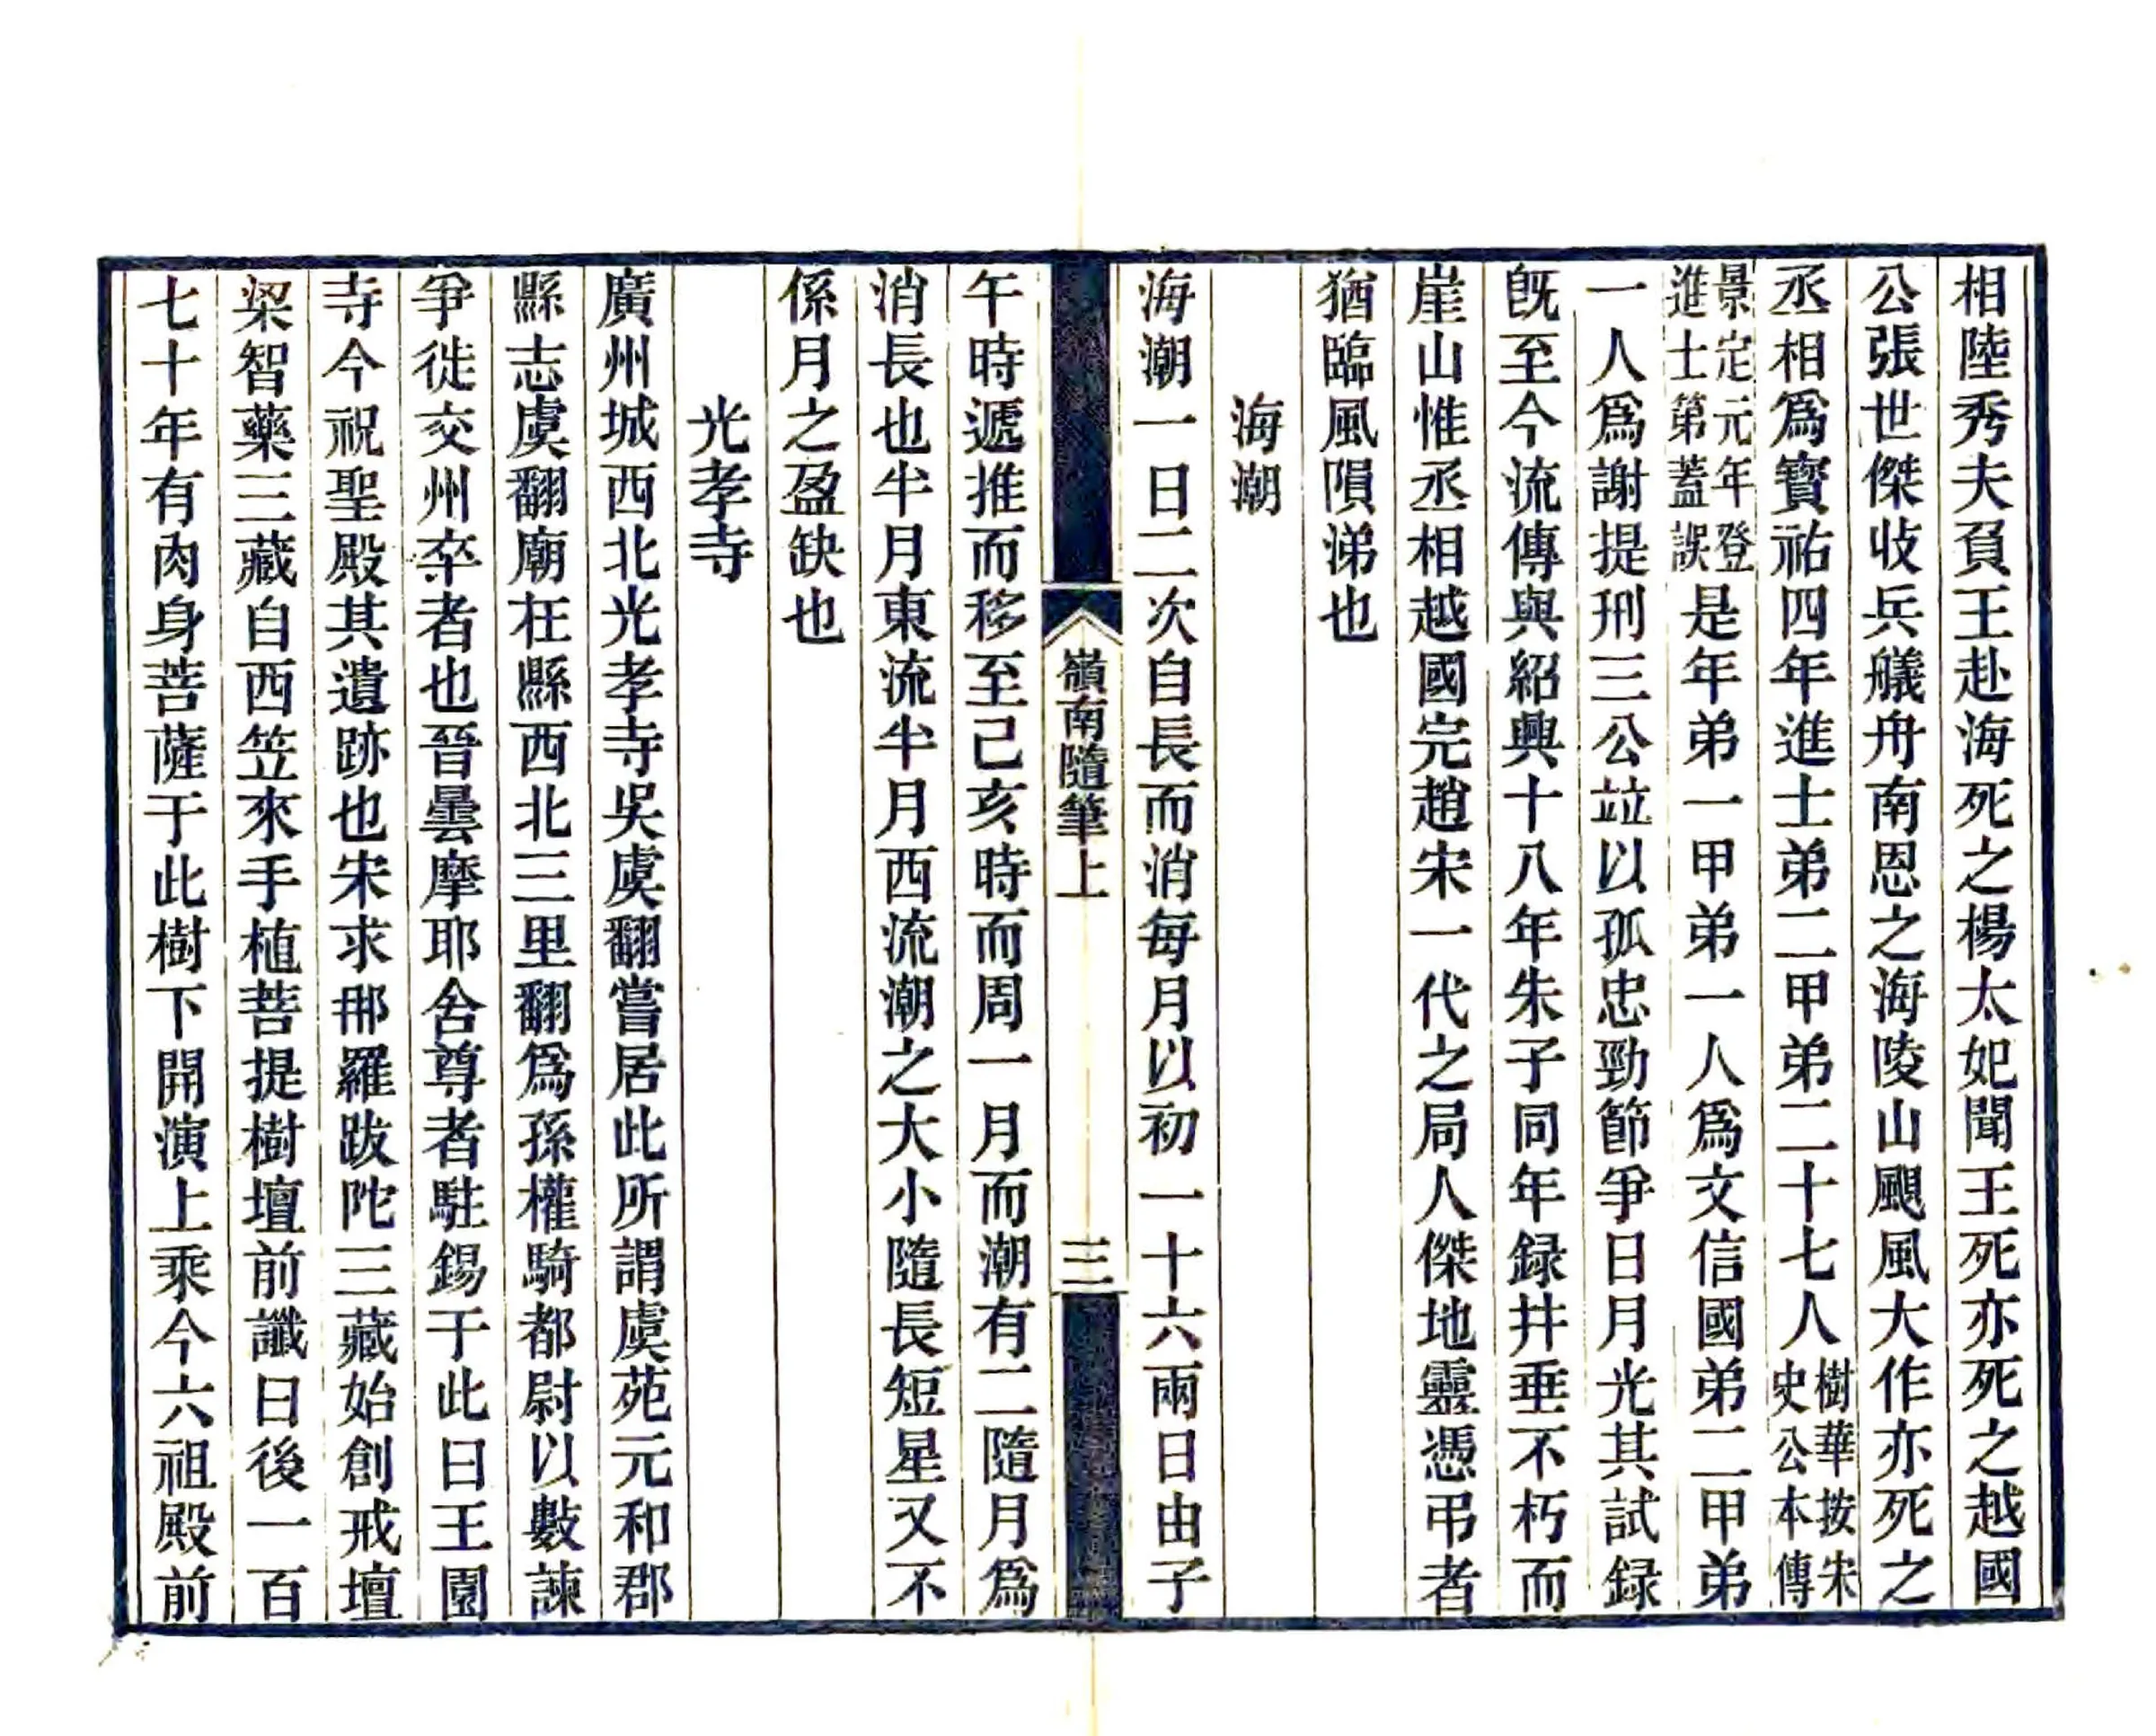 相陸秀夫負王赴海死之楊太妃聞王死亦死之越國
公張世傑收兵艤舟南恩之海陵山颶風大作亦死之
丞相爲寶祐四年進士弟二甲弟二十七人樹華按宋史公本傳
景定元年登進士第蓋誤是年弟一甲弟一人爲文信國弟二甲弟
一人爲謝提刑三公竝以孤忠勁節爭日月光其試録
旣至今流傳與紹興十八年朱子同年録并垂不朽而
崖山惟丞相越國完趙宋一代之局人傑地靈憑弔者
猶臨風隕涕也
海潮
海潮一日二次自長而消每月以初一十六兩日由子
嶺南隨筆上
三
午時遞推而移至己亥時而周一月而潮有二隨月爲
消長也半月東流半月西流潮之大小隨長短星又不
係月之盈缺也
光孝寺
廣州城西北光孝寺吳虞翻嘗居此所謂虞苑元和郡
縣志虞翻廟在縣西北三里翻爲孫權騎都尉以數諫
爭徙交州卒者也晉曇摩耶舍尊者駐錫于此曰王園
寺今祝聖殿其遺跡也宋求那羅跋陀三藏始創戒壇
梁智藥三藏自西竺來手植菩提樹壇前讖曰後一百
七十年有肉身菩薩于此樹下開演上乘今六祖殿前